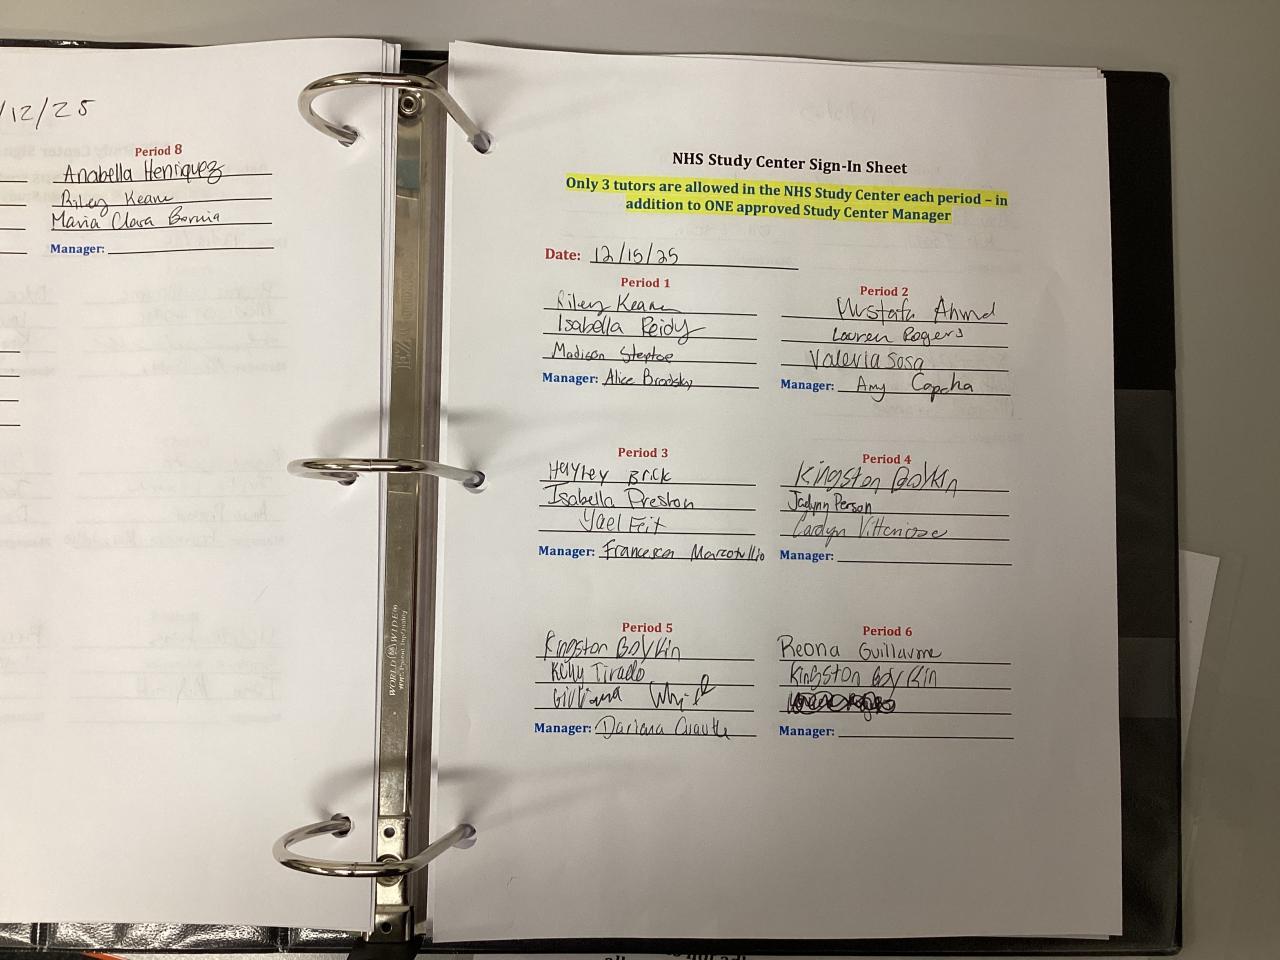 /12/25
Period 8
Anabella Henriquez
Riley Keane
Maria Clara
Manager:
NHS Study Center Sign-In Sheet
Only 3 tutors are allowed in the NHS Study Center each period – in
addition to ONE approved Study Center Manager
Date: 12/15/25
Period 1
Riley Keane
Isabella Reidy
Madison Steptoe
Manager: Alice Brodsky
Period 2
Mustafa Ahmd
Lauren Rogers
Valeria Sosa
Manager: Amy Capcha
Period 3
Hayley Brick
Isabella Preston
Yael Feit
Manager: Francesca Marcotullio
Period 4
Kingston Boykin
Jaelynn Person
Manager:
Period 5
Kingston Boykin
Kelly Tirado
Giuliana
Manager: Dariana
Period 6
Reona Guillaume
Kingston Boykin
Manager:
WORLD WIDE